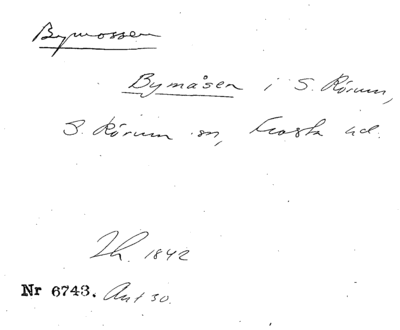 Bymossen
Bymåsen i S. Rörum,
S. Rörum sn, Frosta hd.
Lh. 1842
Nr 6743. Ant 30.